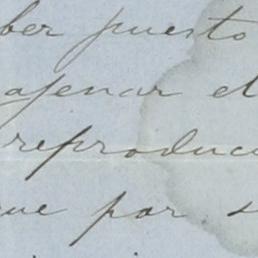 ber puesto
ajenar el
reproduc
que por s